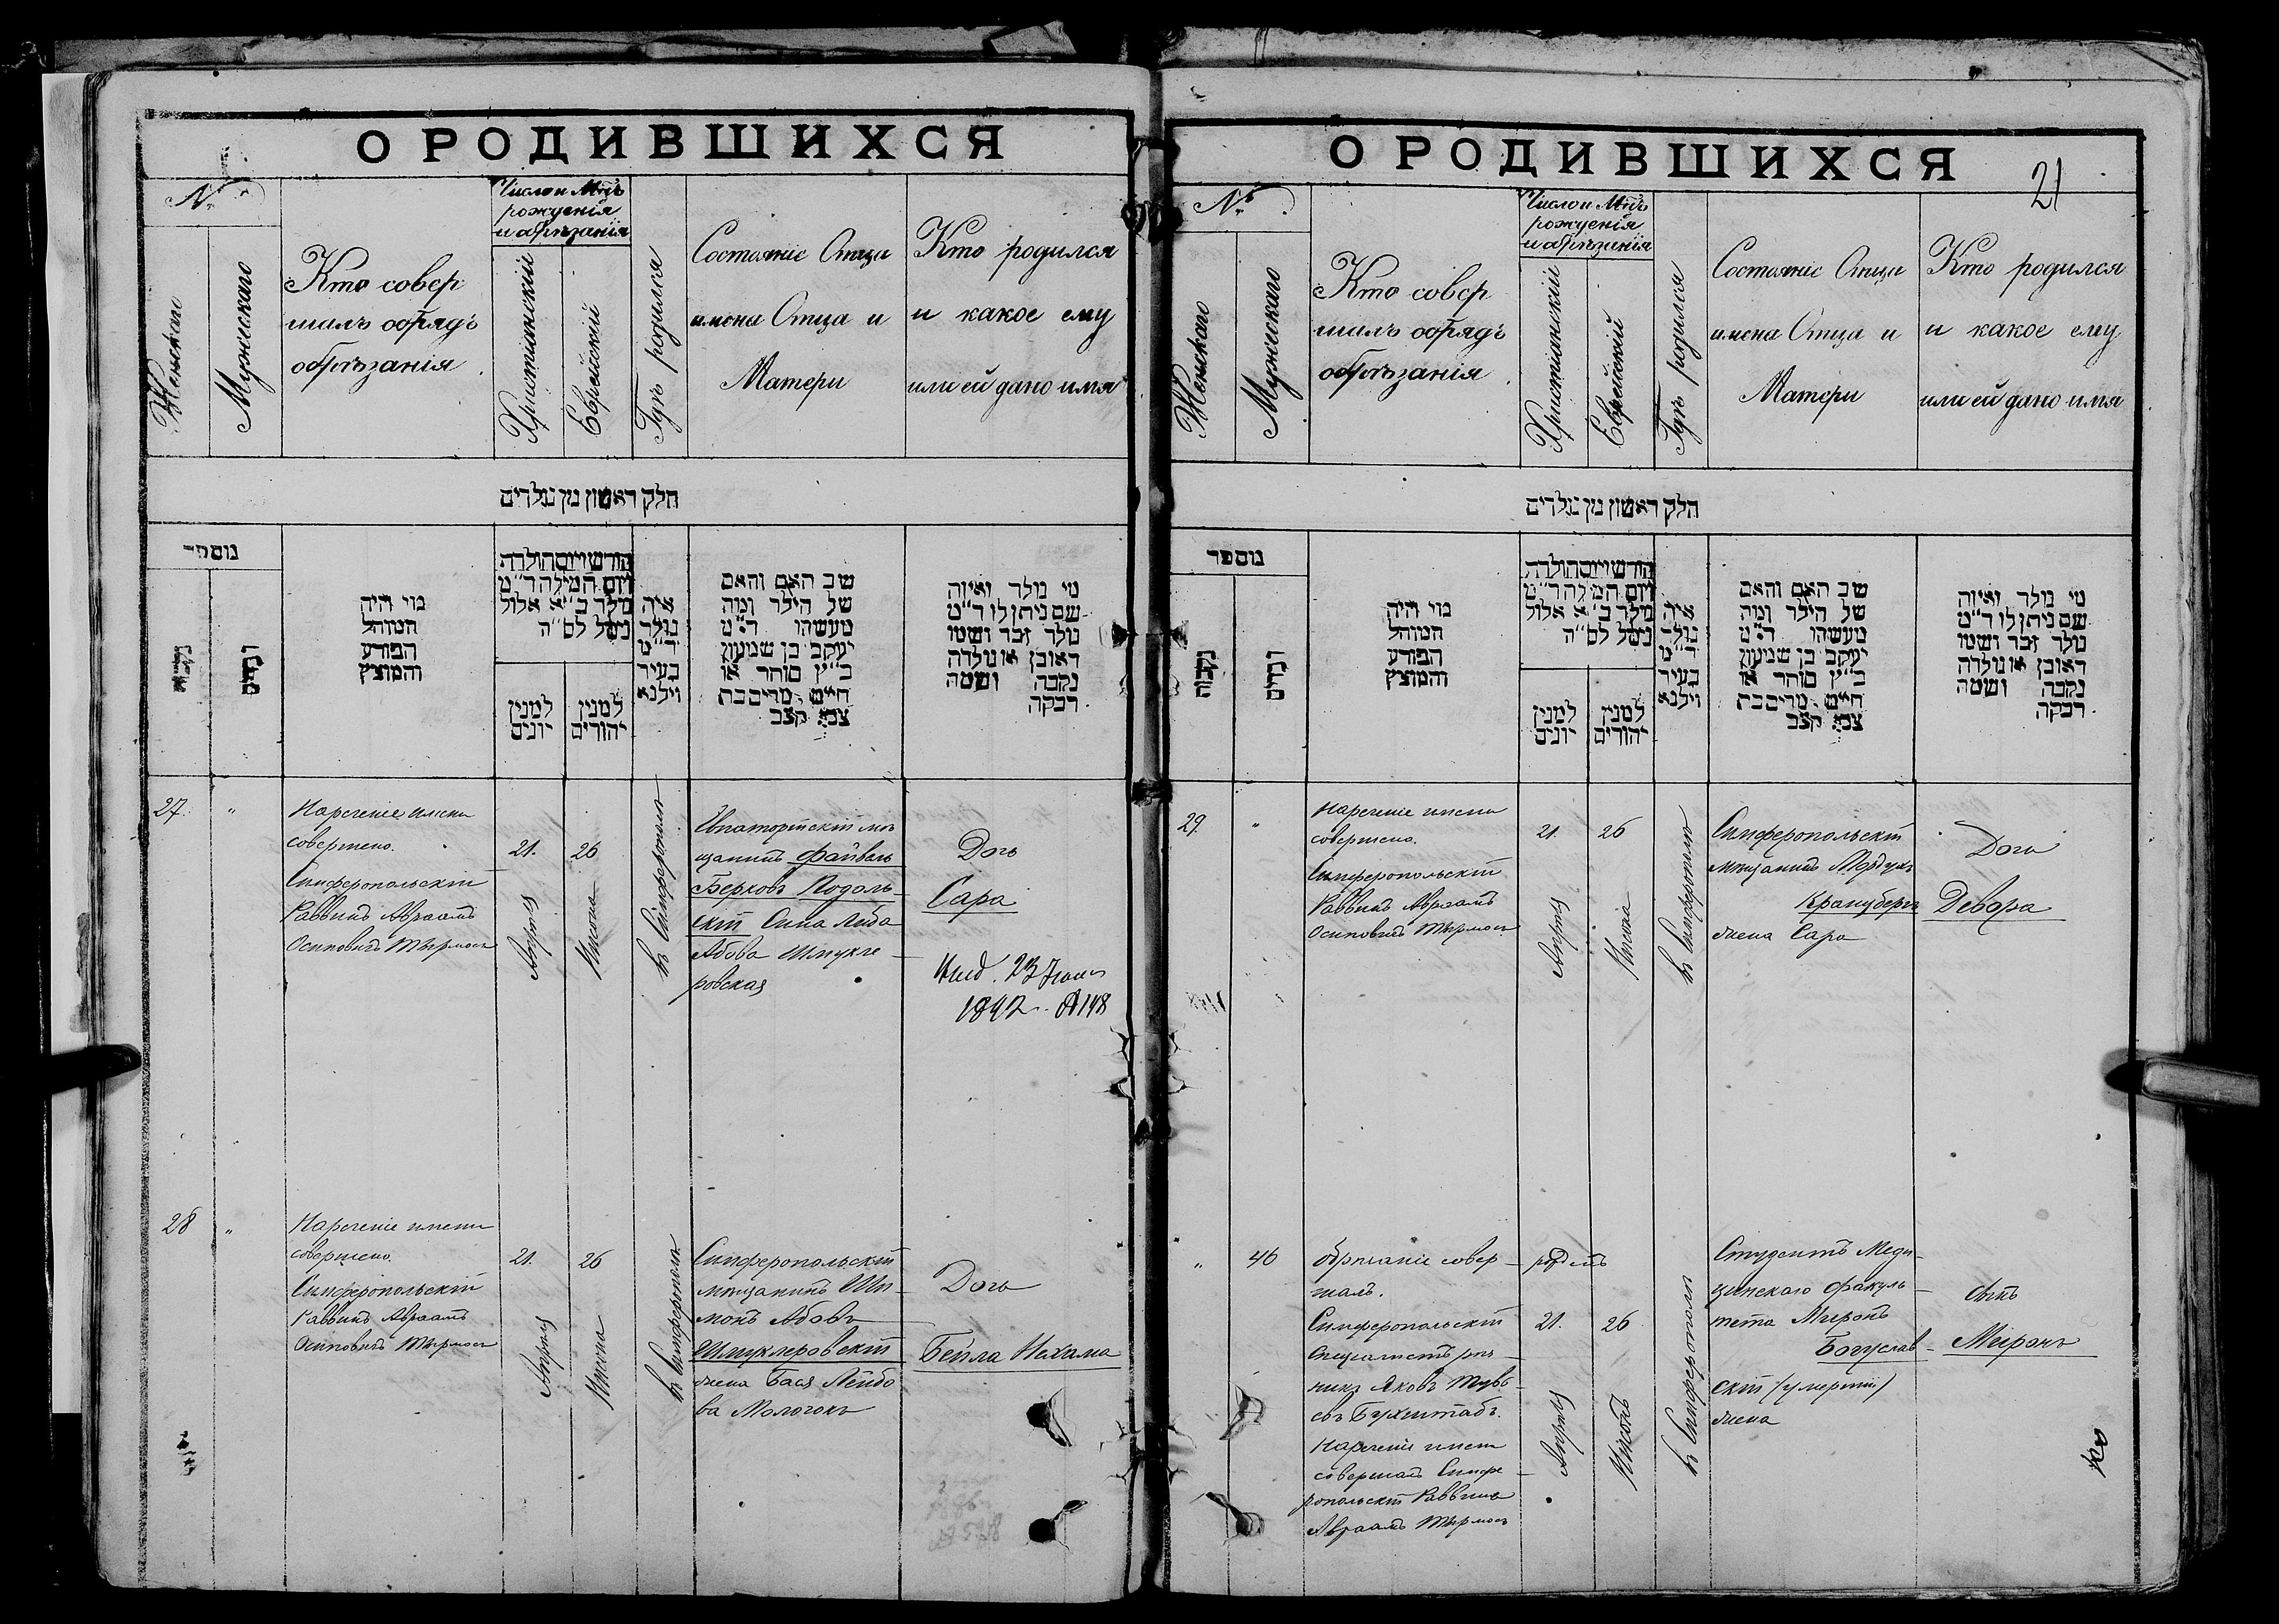 О РОДИВШИХСЯ
№
Женскаго
Мужескаго
Кто совер
шалъ обрядъ
обрѣзанія
Число и Мѣць
рожденія
и обрѣзанія
Христіанскій
Еврейскій
Гдѣ родился
Состояніе Отца
имена Отца и
Матери
Кто родился
и какое ему
или ей дано имя
חלק ראשון מן נולדים
מספר
נקבות
זכרים
מי היה
המוהל
הפורע
והמוצץ
חודש ויום הולדת
ויום המילה ד"מ
נולד ב"א אלול
נימל לס"ה
למנין
יונים
למנין
יהודים
איה
נולד
ד"מ
בעיר
וילנא
שב האם והאם
של הילד ומה
מעשהו ד"מ
יעקב בן שמעון
ב"ץ סוחר או
חייט מרים בת
צבי קצב
מי נולד ואיזה
שם ניתן לו ד"מ
נולד זכר ושמו
ראובן או נולדה
נקבה ושמה
רבקה
27 "
Нареченіе имени
совершено.
Симферопольскій
Раввинъ Авраамъ
Осиповичъ Тырмосъ
21.
Апрѣля
26
Нисона
въ Симферополѣ
Евпаторійскій мѣ
щанинъ Файвель
Берковъ Подоль-
скій
Абова Шмукле-
ровская
Дочь
Сара
1892 №148
28 "
Нареченіе имени
совершено.
Симферопольскій
Раввинъ Авраамъ
Осиповичъ Тырмосъ
21.
Апрѣля
26
Нисона
въ Симферополѣ
Симферопольскій
мѣщанинъ Ши-
монъ Абовъ
Шмуклеровскій
жена Бася Лейбо
ва Молочокъ
Дочь
Бейла Нехама
О РОДИВШИХСЯ
21
№
Женскаго
Мужескаго
Кто совер
шалъ обрядъ
обрѣзанія
Число и Мѣць
рожденія
и обрѣзанія
Христіанскій
Еврейскій
Гдѣ родился
Состояніе Отца
имена Отца и
Матери
Кто родился
и какое ему
или ей дано имя
חלק ראשון מן נולדים
מספר
נקבות
זכרים
מי היה
המוהל
הפורע
והמוצץ
חודש ויום הולדת
ויום המילה ד"מ
נולד ב"א אלול
נימל לס"ה
למנין
יונים
למנין
יהודים
איה
נולד
ד"מ
בעיר
וילנא
שב האם והאם
של הילד ומה
מעשהו ד"מ
יעקב בן שמעון
ב"ץ סוחר או
חייט מרים בת
צבי קצב
מי נולד ואיזה
שם ניתן לו ד"מ
נולד זכר ושמו
ראובן או נולדה
נקבה ושמה
רבקה
29. "
Нареченіе имени
совершено.
Симферопольскій
Раввинъ Авраамъ
Осиповичъ Тырмосъ
21.
Апрѣля
26
Нисона
въ Симферополѣ
Симферопольскій
мѣщанинъ Мордухъ
Кранцбергъ
жена Сара
Дочь
Девора
" 46
Обрѣзаніе совер-
шалъ.
Симферопольскій
Спеціалистъ рѣз-
никъ Яковъ Тувь-
евъ Бухштабъ.
Нареченіе имени
совершалъ Симфе-
ропольскій Раввинъ
Авраамъ Тырмосъ
родить
21.
Апрѣля
26
Нисонъ
въ Симферополѣ
Студентъ Меди-
цинскаго факуль-
тета Миронъ
Богуслав-
скій (умершій)
жена
Сынъ
Миронъ